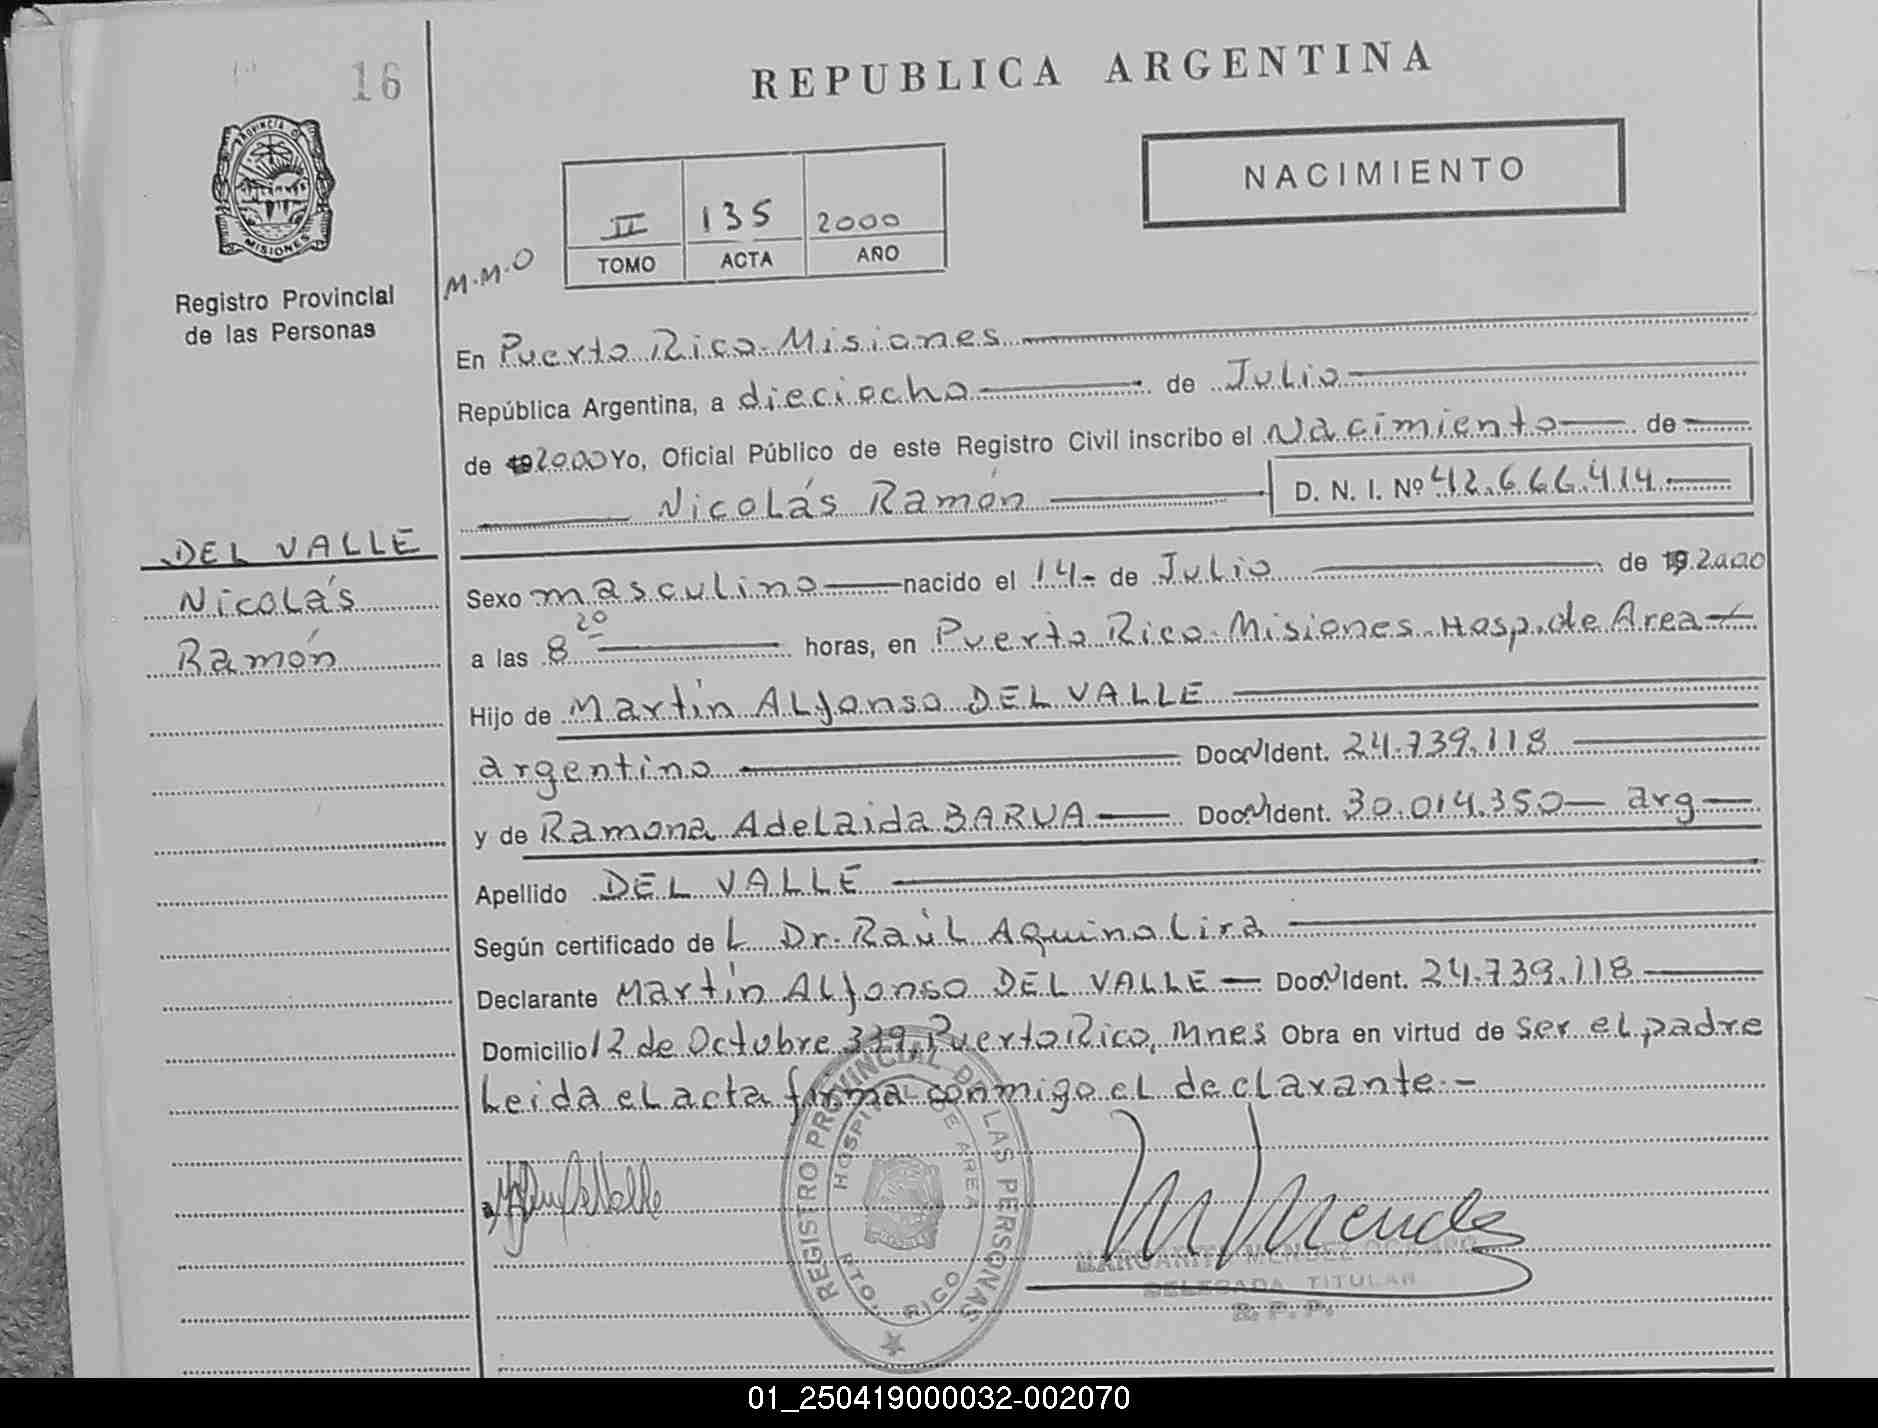 16
REPUBLICA ARGENTINA
NACIMIENTO
PROVINCIA DE
MISIONES
Registro Provincial
de las Personas
II 135 2000
TOMO ACTA AÑO
M.M.O
En Puerto Rico-Misiones
República Argentina, a dieciocho de Julio
de 192000 Yo, Oficial Público de este Registro Civil inscribo el Nacimiento de
Nicolás Ramón D. N. I. Nº 42.666.414
DEL VALLE
Nicolás
Ramón
Sexo masculino nacido el 14- de Julio de 192000
a las 8 20 horas, en Puerto Rico-Misiones-Hosp.de Area
Hijo de Martín Alfonso DEL VALLE
argentino Doc. Ident. 24.739.118
y de Ramona Adelaida BARUA Doc. Ident. 30.014.350- arg
Apellido DEL VALLE
Según certificado de L Dr. Raúl Aquino Lira
Declarante Martín Alfonso DEL VALLE Doc. Ident. 24.739.118
Domicilio 12 de Octubre 339, Puerto Rico, Mnes Obra en virtud de ser el padre
Leida el acta firma conmigo el declarante.-
REGISTRO PROVINCIAL DE LAS PERSONAS
HOSPITAL DE AREA
PTO. RICO
M Mendez
MARGARITA MENDEZ
DELEGADA TITULAR
R. P. P.
01_250419000032-002070